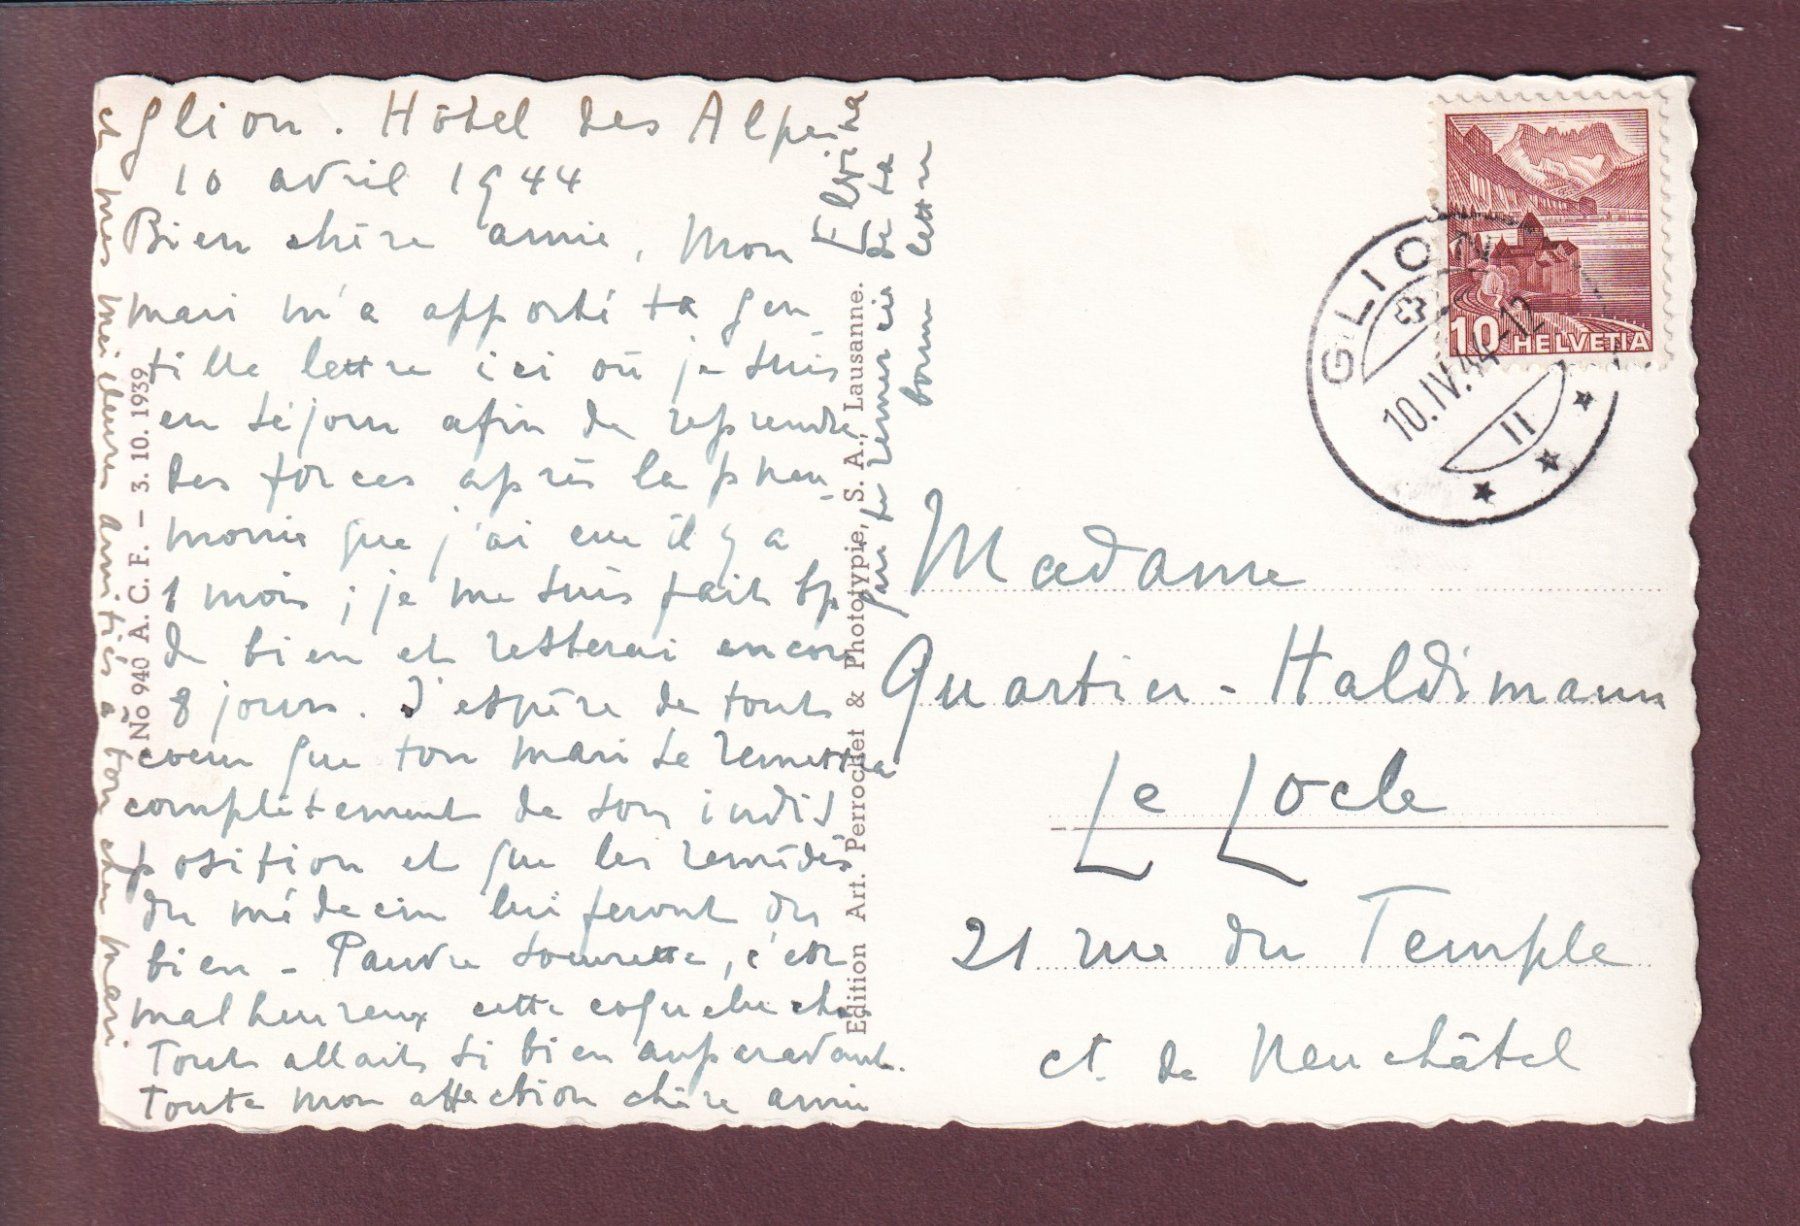 Glion. Hôtel des Alpes
10 avril 1944
Bien chère amie, Mon
mari m'a apporté ta gen-
tille lettre ici où je suis
en séjour afin de reprendre
des forces après la pneu-
monie que j'ai eue il y a
1 mois ; je me suis fait bp
de bien et resterai encore
8 jours. J'espère de tout
coeur que ton mari se remettra
complètement de son indis
position et que les remèdes
du médecin lui feront du
bien - Pauvre soeurette, c'est
malheureux cette coqueluche
Tout allait si bien auparavant.
Toute mon affection chère amie
et mes meilleures amitiés à ton cher mari
en te remerciant
de ta
bonne lettre
No 940 A. C. F. – 3. 10. 1939
Edition Art. Perrochet & Phototypie, S. A., Lausanne.
10 HELVETIA
GLION
10.IV.44-12
II
Madame
Quartier - Haldimann
Le Locle
21 rue du Temple
ct. de Neuchâtel